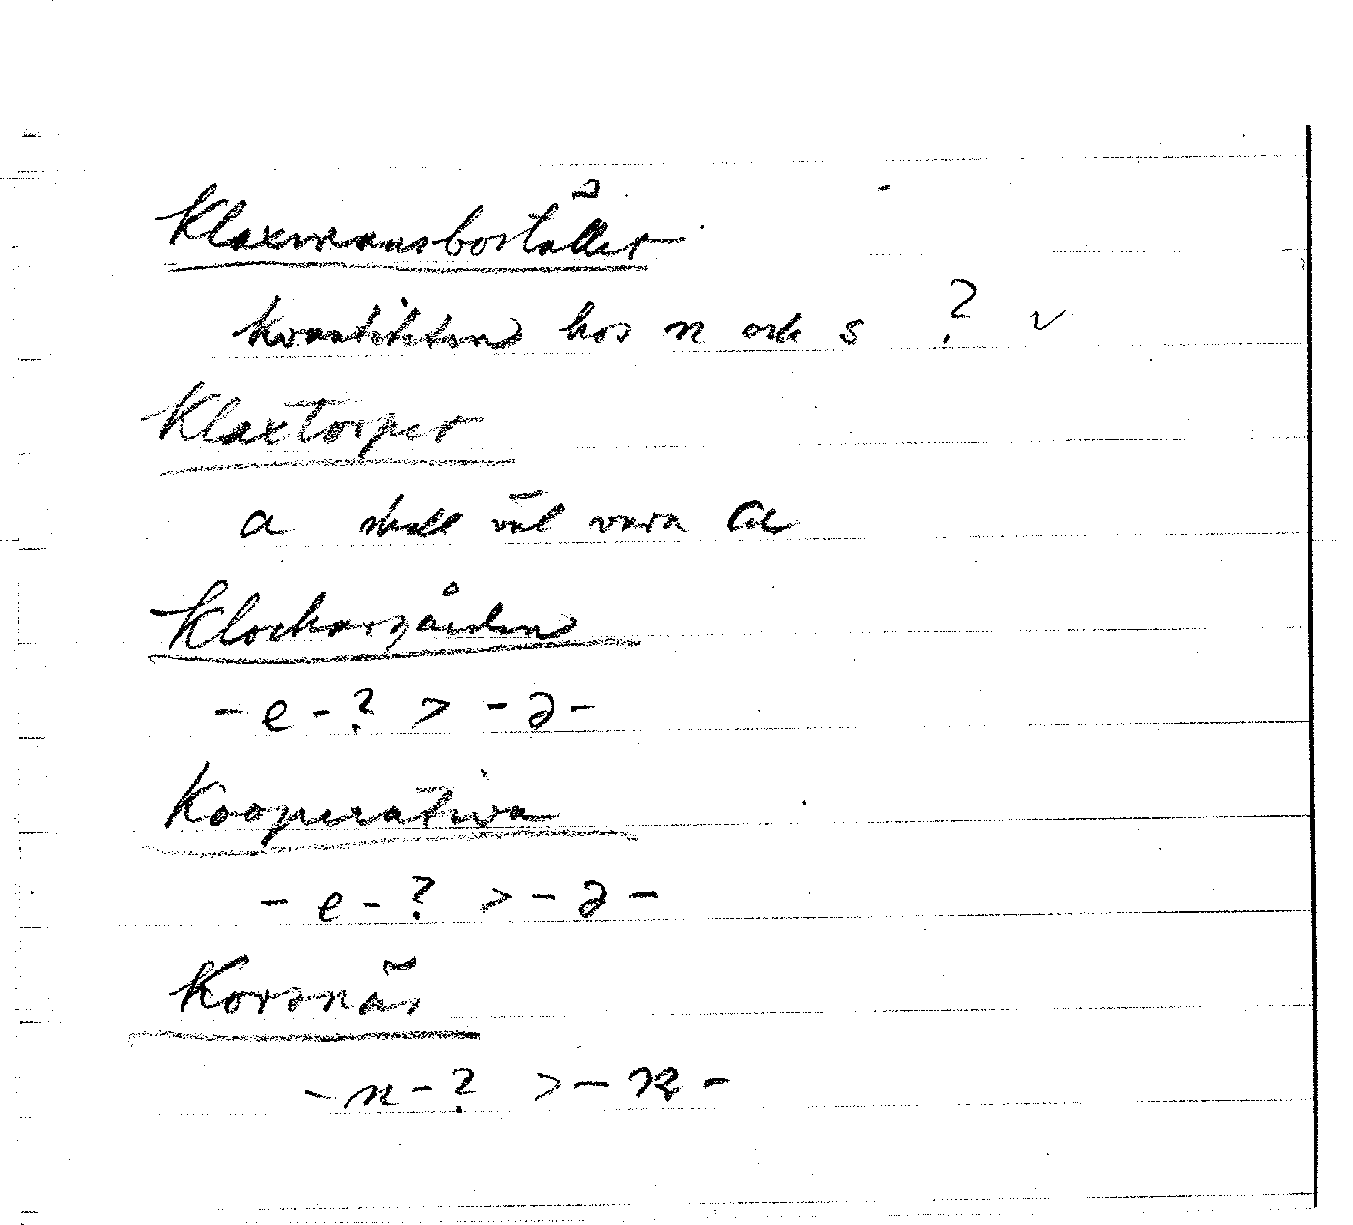 Klaxmansbostället
kvantiteten hos n och s ? v
Klaxtorpet
a skall väl vara ɑ
Klockargården
- e - ? > - ə -
Kooperativa
- e - ? > - ə -
Korsnäs
- n - ? > - ɳ -